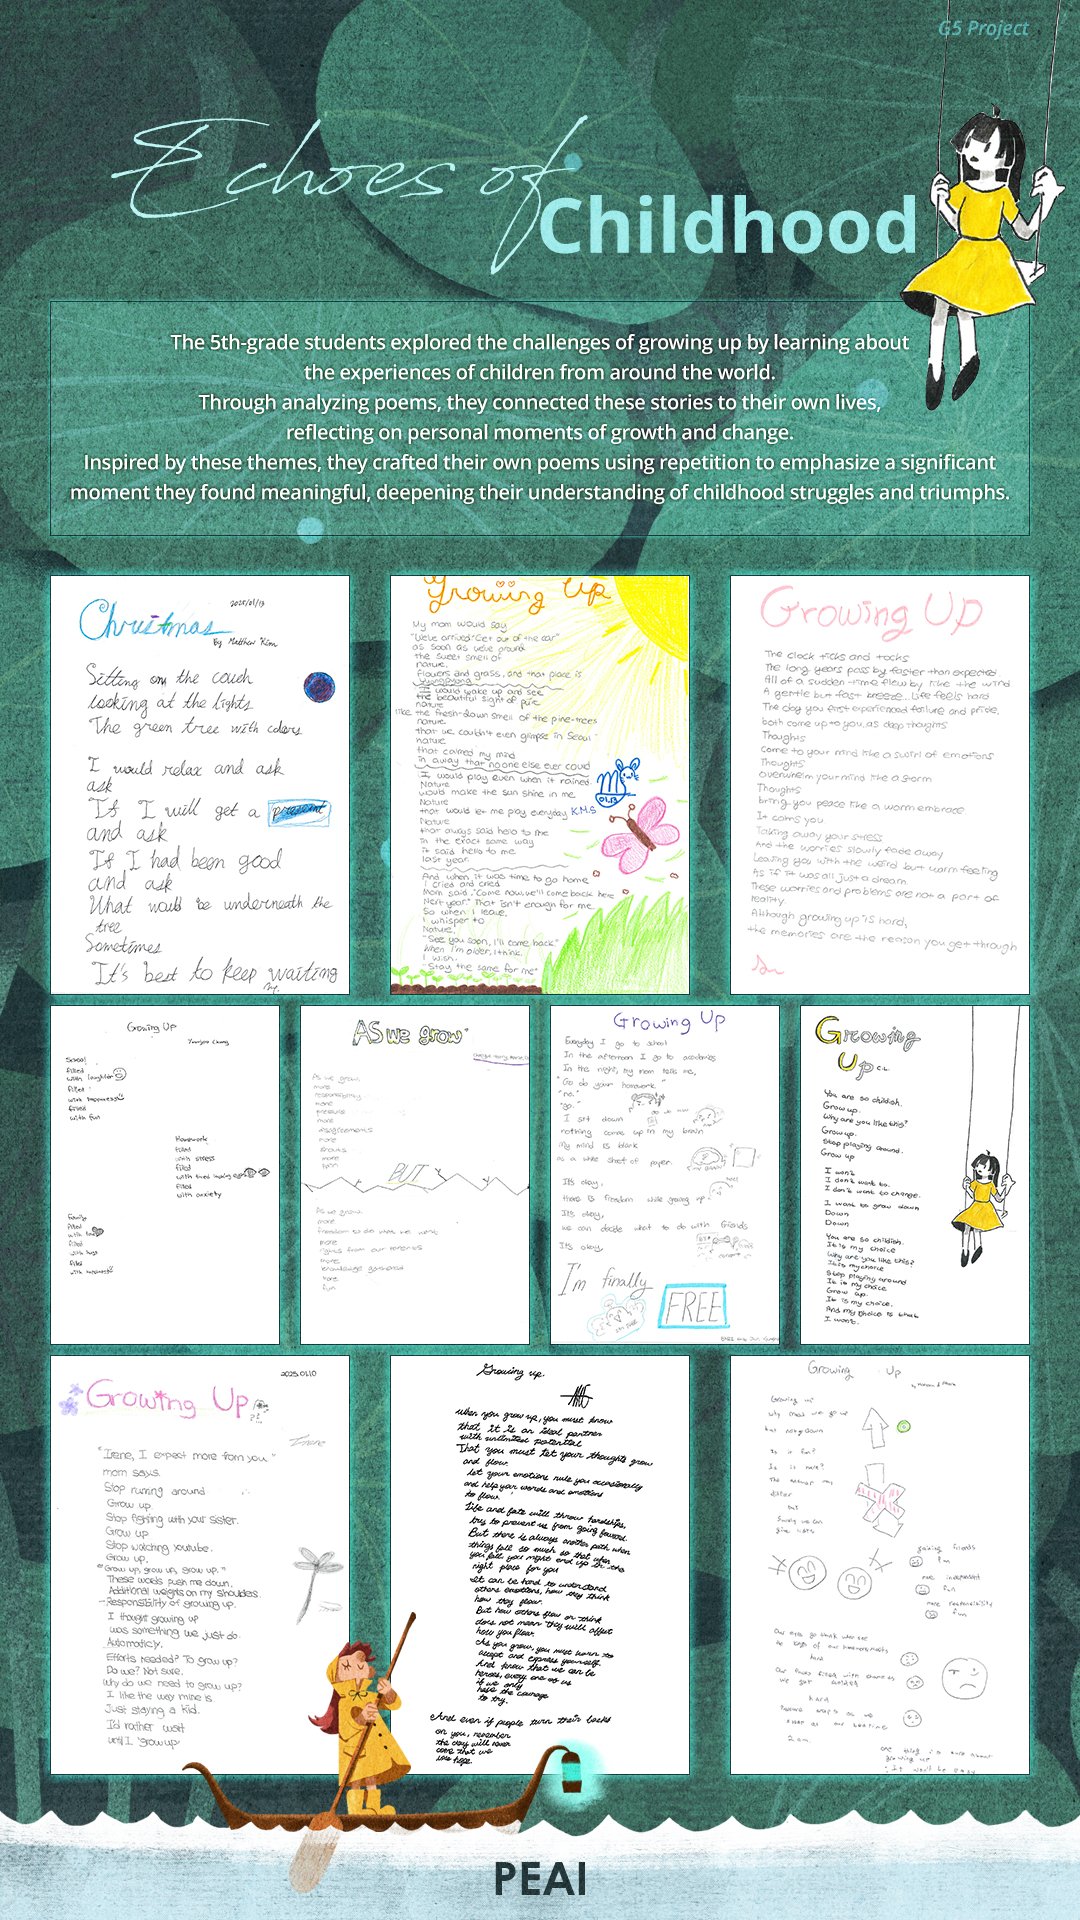 G5 Project
Echoes of
Childhood
The 5th-grade students explored the challenges of growing up by learning about
the experiences of children from around the world.
Through analyzing poems, they connected these stories to their own lives,
reflecting on personal moments of growth and change.
Inspired by these themes, they crafted their own poems using repetition to emphasize a significant
moment they found meaningful, deepening their understanding of childhood struggles and triumphs.
2025/01/13
Christmas
By Matthew Kim
Sitting on the couch
looking at the lights
The green tree with colors
I would relax and ask
ask
If I will get a present
and ask
If I had been good
and ask
What would be underneath the
tree
Sometimes
It's best to keep waiting
Growing Up
My mom would say
"We've arrived! Get out of the car"
as soon as we've
the sweet smell of
nature.
Flowers and grass, and that place is
would wake up and see
the beautiful sight of pure
nature
like the fresh-dawn smell of the pine-trees
nature
that we couldn't even glimpse in Seoul
nature
that calmed my mind
in away that no one else ever could
I would play even when it rained.
Nature
would make the sun shine in me
Nature
that would let me play everyday
Nature
that always said hello to me
in the exact same way
it said hello to me
last year.
And when it was time to go home
I cried and cried.
Mom said, "Come now, we'll come back here
Next year." That isn't enough for me.
So when I leave,
I whisper to
Nature,
"See you soon, I'll come back"
When I'm older, I think.
I wish.
"Stay the same for me"
M
01.13
K.M.S
Growing Up
The clock ticks and tocks
The long years pass by faster than expected
All of a sudden time flew by like the wind
A gentle but fast breeze. Life feels hard
The day you first experienced failure and pride,
both come up to you, as deep thoughts
Thoughts
Come to your mind like a swirl of emotions
Thoughts
overwhelm your mind like a storm
Thoughts
bring you peace like a warm embrace
It calms you
Taking away your stress
And the worries slowly fade away
Leaving you with the weird but warm feeling
As if it was all just a dream.
These worries and problems are not a part of
reality.
Although growing up is hard,
the memories are the reason you get through
Growing Up
School
filled
with laughter
filled
with happiness
filled
with fun
Homework
filled
with stress
filled
with tired eyes
filled
with anxiety
Family
filled
with love
filled
with hugs
filled
with
As we grow
As we grow
more
responsibility
more
pressure
more
disagreements
more
more
BUT
As we grow
more
freedom to do what we want
more
rights from our
more
knowledge gathered
more
fun
Growing Up
Everyday I go to school
In the afternoon I go to academies
In the night, my mom tells me,
"Go do your homework."
"no."
"go."
I sit down
nothing comes up in my brain
My mind is blank
as a white sheet of paper.
It's okay,
there is freedom while growing up
It's okay,
we can decide what to do with friends
It's okay,
I'm finally
FREE
Growing
Up
C.L.
You are so childish.
Grow up.
Why are you like this?
Grow up.
Stop playing around.
Grow up
I won't
I don't want to.
I don't want to change.
I want to grow down
Down
Down
You are so childish.
It is my choice
Why are you like this?
It is my choice
Stop playing around
It is my choice
Grow up.
It is my choice.
And my choice is that
I won't.
2025.01.10
Growing Up
Irene
"Irene, I expect more from you."
mom says.
Stop running around
Grow up
Stop fighting with your sister.
Grow up
Stop watching youtube.
Grow up.
"Grow up, grow up, grow up."
These words push me down.
Additional weights on my shoulders
-Responsibility of growing up.
I thought growing up
was something we just do.
Automaticly.
Efforts needed? To grow up?
Do we? Not sure.
Why do we need to grow up?
I like the way mine is.
Just staying a kid.
I'd rather wait
until I "grow up"
Growing up
When you grow up, you must know
that it is an ideal partner
with unlimited potential
That you must let your thoughts grow
and flow.
Let your emotions rule you occasionally
and help your words and emotions
to flow.
Life and fate will throw hardships,
try to prevent us from going forward.
But there is always another path when
things fall so much so that when
you fall you might end up in the
right place for you
It can be hard to understand
others emotions, how they think
how they flow.
But how others flow or think
does not mean they will affect
how you flow.
As you grow, you must learn to
accept and express yourself.
And know that we can be
heroes, every one of us
if we only
have the courage
to try.
And even if people turn their backs
on you, remember
the day will never
come that we
lose hope.
Growing Up
Growing up
Why must we go up
but not down
Is it fun?
Is it
The answer may
differ
but
gaining friends
fun
more independent
fun
more responsibility
fun
hard
hard
PEAI